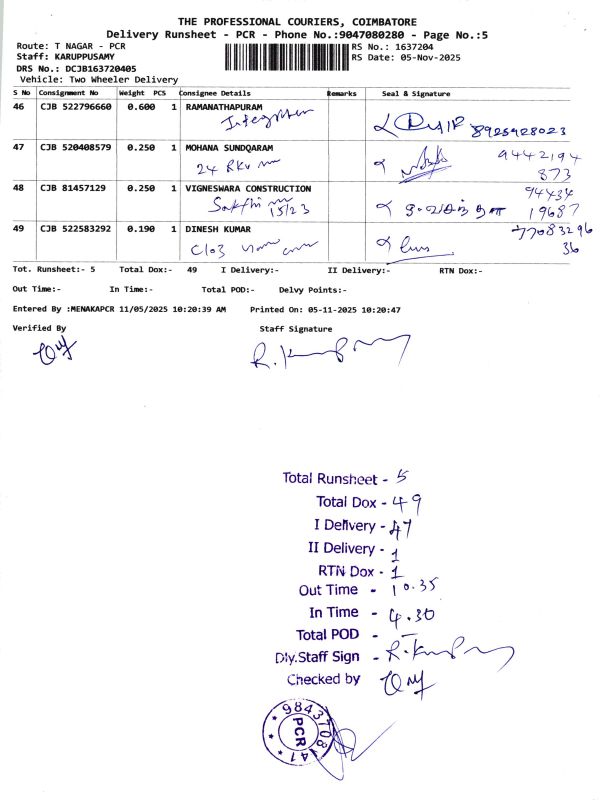 THE PROFESSIONAL COURIERS, COIMBATORE
Delivery Runsheet - PCR - Phone No.:9047080280 - Page No.:5
Route: T NAGAR - PCR
RS No.: 1637204
Staff: KARUPPUSAMY
RS Date: 05-Nov-2025
DRS No.: DCJB163720405
Vehicle: Two Wheeler Delivery
S No Consignment No Weight PCS Consignee Details Remarks Seal & Signature
46 CJB 522796660 0.600 1 RAMANATHAPURAM
8925928023
47 CJB 520408579 0.250 1 MOHANA SUNDQARAM
9442194
24 RKV
873
48 CJB 81457129 0.250 1 VIGNESWARA CONSTRUCTION
94434
Sakthi
15/23
19687
49 CJB 522583292 0.190 1 DINESH KUMAR
77083296
36
Tot. Runsheet:- 5 Total Dox:- 49 I Delivery:- II Delivery:- RTN Dox:-
Out Time:- In Time:- Total POD:- Delvy Points:-
Entered By :MENAKAPCR 11/05/2025 10:20:39 AM Printed On: 05-11-2025 10:20:47
Verified By Staff Signature
Total Runsheet - 5
Total Dox - 49
I Delivery - 47
II Delivery - 1
RTN Dox - 1
Out Time - 10.35
In Time - 4.30
Total POD -
Dly.Staff Sign -
Checked by
9843708141
PCR